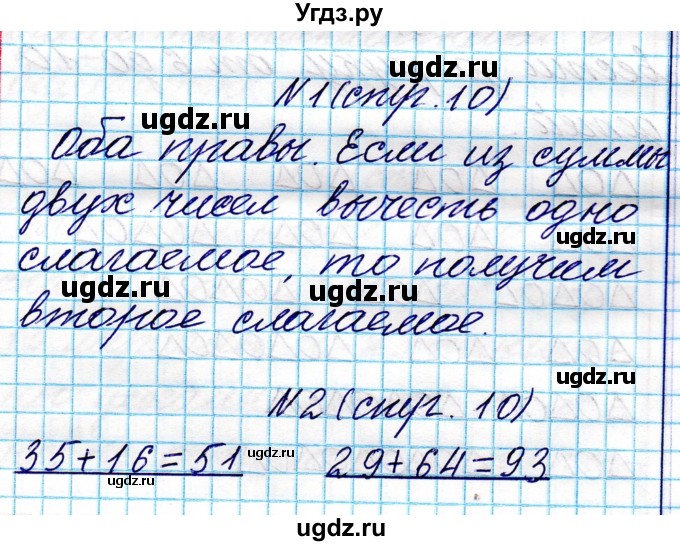 Угдз.ру
№1 (стр. 10)
Оба правы. Если из суммы
двух чисел вычесть одно
слагаемое, то получим
второе слагаемое.
№2 (стр. 10)
35+16=51 29+64=93
ugdz.ru
ugdz.ru
ugdz.ru
ugdz.ru
ugdz.ru
ugdz.ru
ugdz.ru
ugdz.ru
ugdz.ru
ugdz.ru